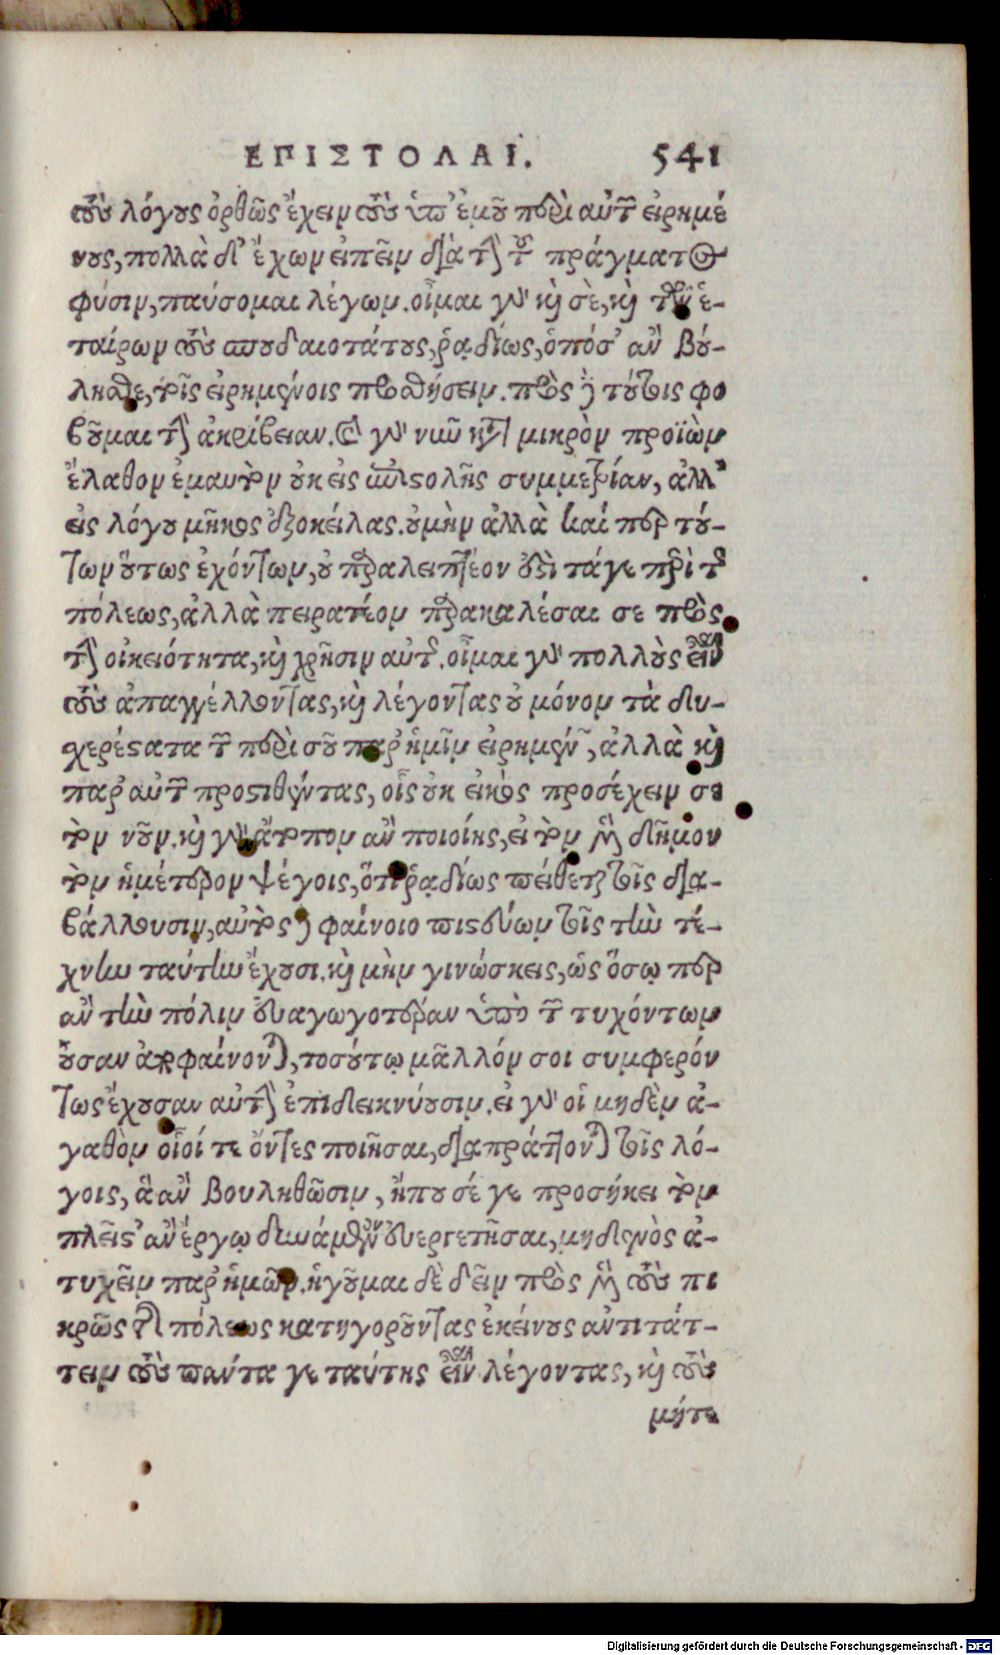 ΕΠΙΣΤΟΛΑΙ. 541
τοὺς λόγους ὀρθῶς ἔχειν τοὺς ὑπ' ἐμοῦ περὶ αὐτῶν εἰρημέ
νους, πολλὰ δ' ἔχων εἰπεῖν διὰ τὴν τοῦ πράγματος
φύσιν, παύσομαι λέγων. οἶμαι γὰρ καὶ σὲ, καὶ τῶν ἑ-
ταίρων τοὺς σπουδαιοτάτους, ῥᾳδίως, ὁπόσ' ἂν βού-
ληθε, τοῖς εἰρημένοις προσθήσειν. πρὸς δὲ τούτοις φο
βοῦμαι τὴν ἀκρίβειαν. καὶ γὰρ νῦν κατὰ μικρὸν προϊὼν
ἔλαθον ἐμαυτὸν οὐκ εἰς ἐπιστολῆς συμμετρίαν, ἀλλ'
εἰς λόγου μῆκος ἐξοκείλας. οὐ μὴν ἀλλὰ καί περ τού-
των οὕτως ἐχόντων, οὐ παραλειπτέον ἐστὶ τά γε περὶ τῆς
πόλεως, ἀλλὰ πειρατέον παρακαλέσαι σε πρὸς
τὴν οἰκειότητα, καὶ χρῆσιν αὐτῆς. οἶμαι γὰρ πολλοὺς εἶναι
τοὺς ἀπαγγέλλοντας, καὶ λέγοντας οὐ μόνον τὰ δυ-
χερέστατα τῶν περὶ σοῦ παρ' ἡμῖν εἰρημένων, ἀλλὰ καὶ
παρ' αὐτῶν προστιθέντας, οἷς οὐκ εἰκὸς προσέχειν σε
τὸν νοῦν. καὶ γὰρ ἄτοπον ἂν ποιοίης, εἰ τὸν μὲν δῆμον
τὸν ἡμέτερον ψέγοις, ὅτι ῥᾳδίως πείθεται τοῖς δια-
βάλλουσιν, αὐτὸς δὲ φαίνοιο πιστεύων τοῖς τὴν τέ-
χνην ταύτην ἔχουσι. καὶ μὴν γινώσκεις, ὡς ὅσῳ περ
ἂν τὴν πόλιν εὐαγωγοτέραν ὑπὸ τῶν τυχόντων
οὖσαν ἀποφαίνονται, τοσούτῳ μᾶλλόν σοι συμφερόν
τως ἔχουσαν αὐτὴν ἐπιδεικνύουσιν. εἰ γὰρ οἱ μηδὲν ἀ-
γαθὸν οἷοί τε ὄντες ποιῆσαι, διαπράττονται τοῖς λό-
γοις, ἃ ἂν βουληθῶσιν, ἤπου σέ γε προσήκει τὸν
πλεῖστ' ἂν ἔργῳ δυνάμενον εὐεργετῆσαι, μηδενὸς ἀ-
τυχεῖν παρ' ἡμῶν. ἡγοῦμαι δὲ δεῖν πρὸς μὲν τοὺς πι
κρῶς τῆς πόλεως κατηγοροῦντας ἐκείνους ἀντιτάτ-
τειν τοὺς πάντα γε ταύτης εἶναι λέγοντας, καὶ τοὺς
μήτε
Digitalisierung gefördert durch die Deutsche Forschungsgemeinschaft - DFG